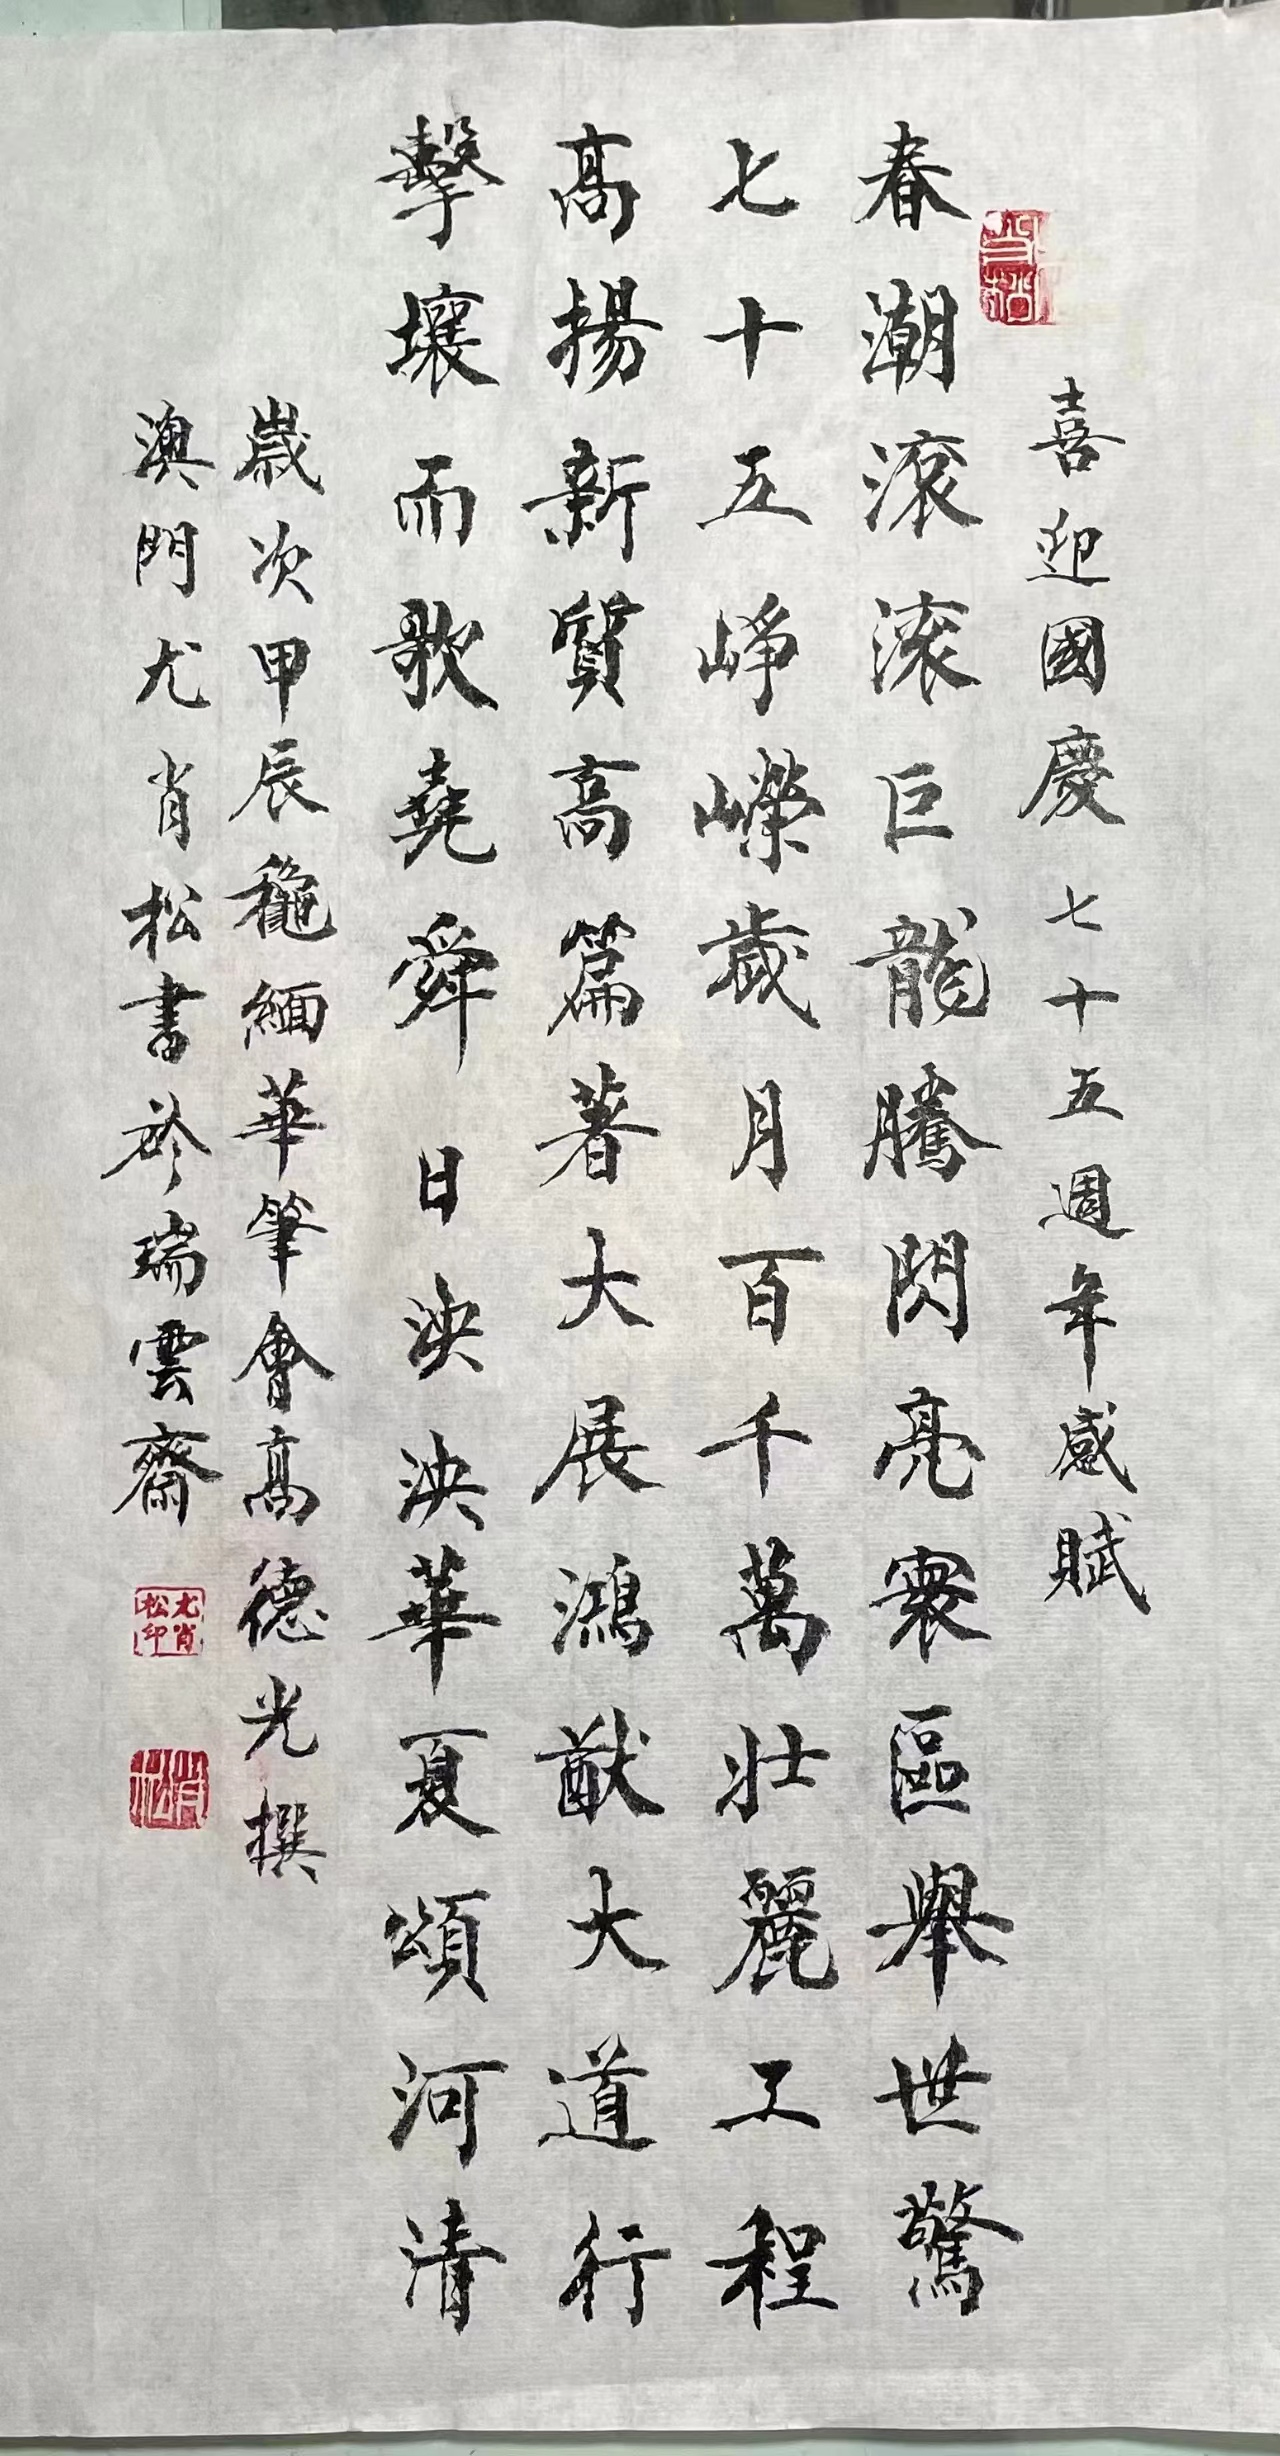 喜迎國慶七十五週年感賦
春潮滾滾巨龍騰閃亮寰區舉世驚
七十五崢嶸歲月百千萬壯麗工程
高揚新質高篇著大展鴻猷大道行
擊壤而歌堯舜日泱泱華夏頌河清
歲次甲辰龝緬華筆會高德光撰
澳門尤肖松書於瑞雲齋
尤肖松印
肖松